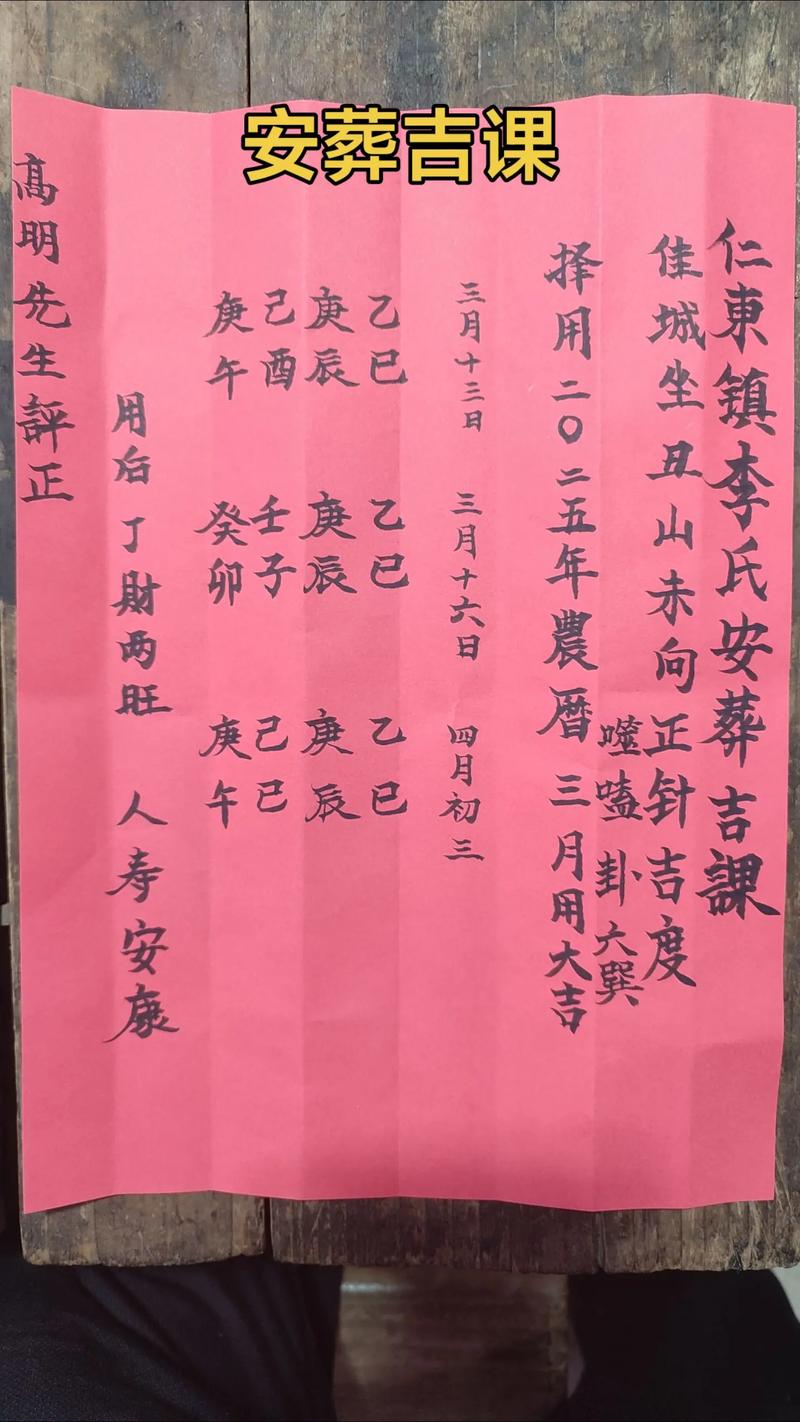 安葬吉课
仁東镇李氏安葬吉課
佳城坐丑山未向正针吉度
噬嗑卦六巽
择用二〇二五年農曆三月用大吉
三月十三日 三月十六日 四月初三
乙巳 乙巳 乙巳
庚辰 庚辰 庚辰
己酉 壬子 己巳
庚午 癸卯 庚午
用后丁財两旺 人寿安康
高明先生評正